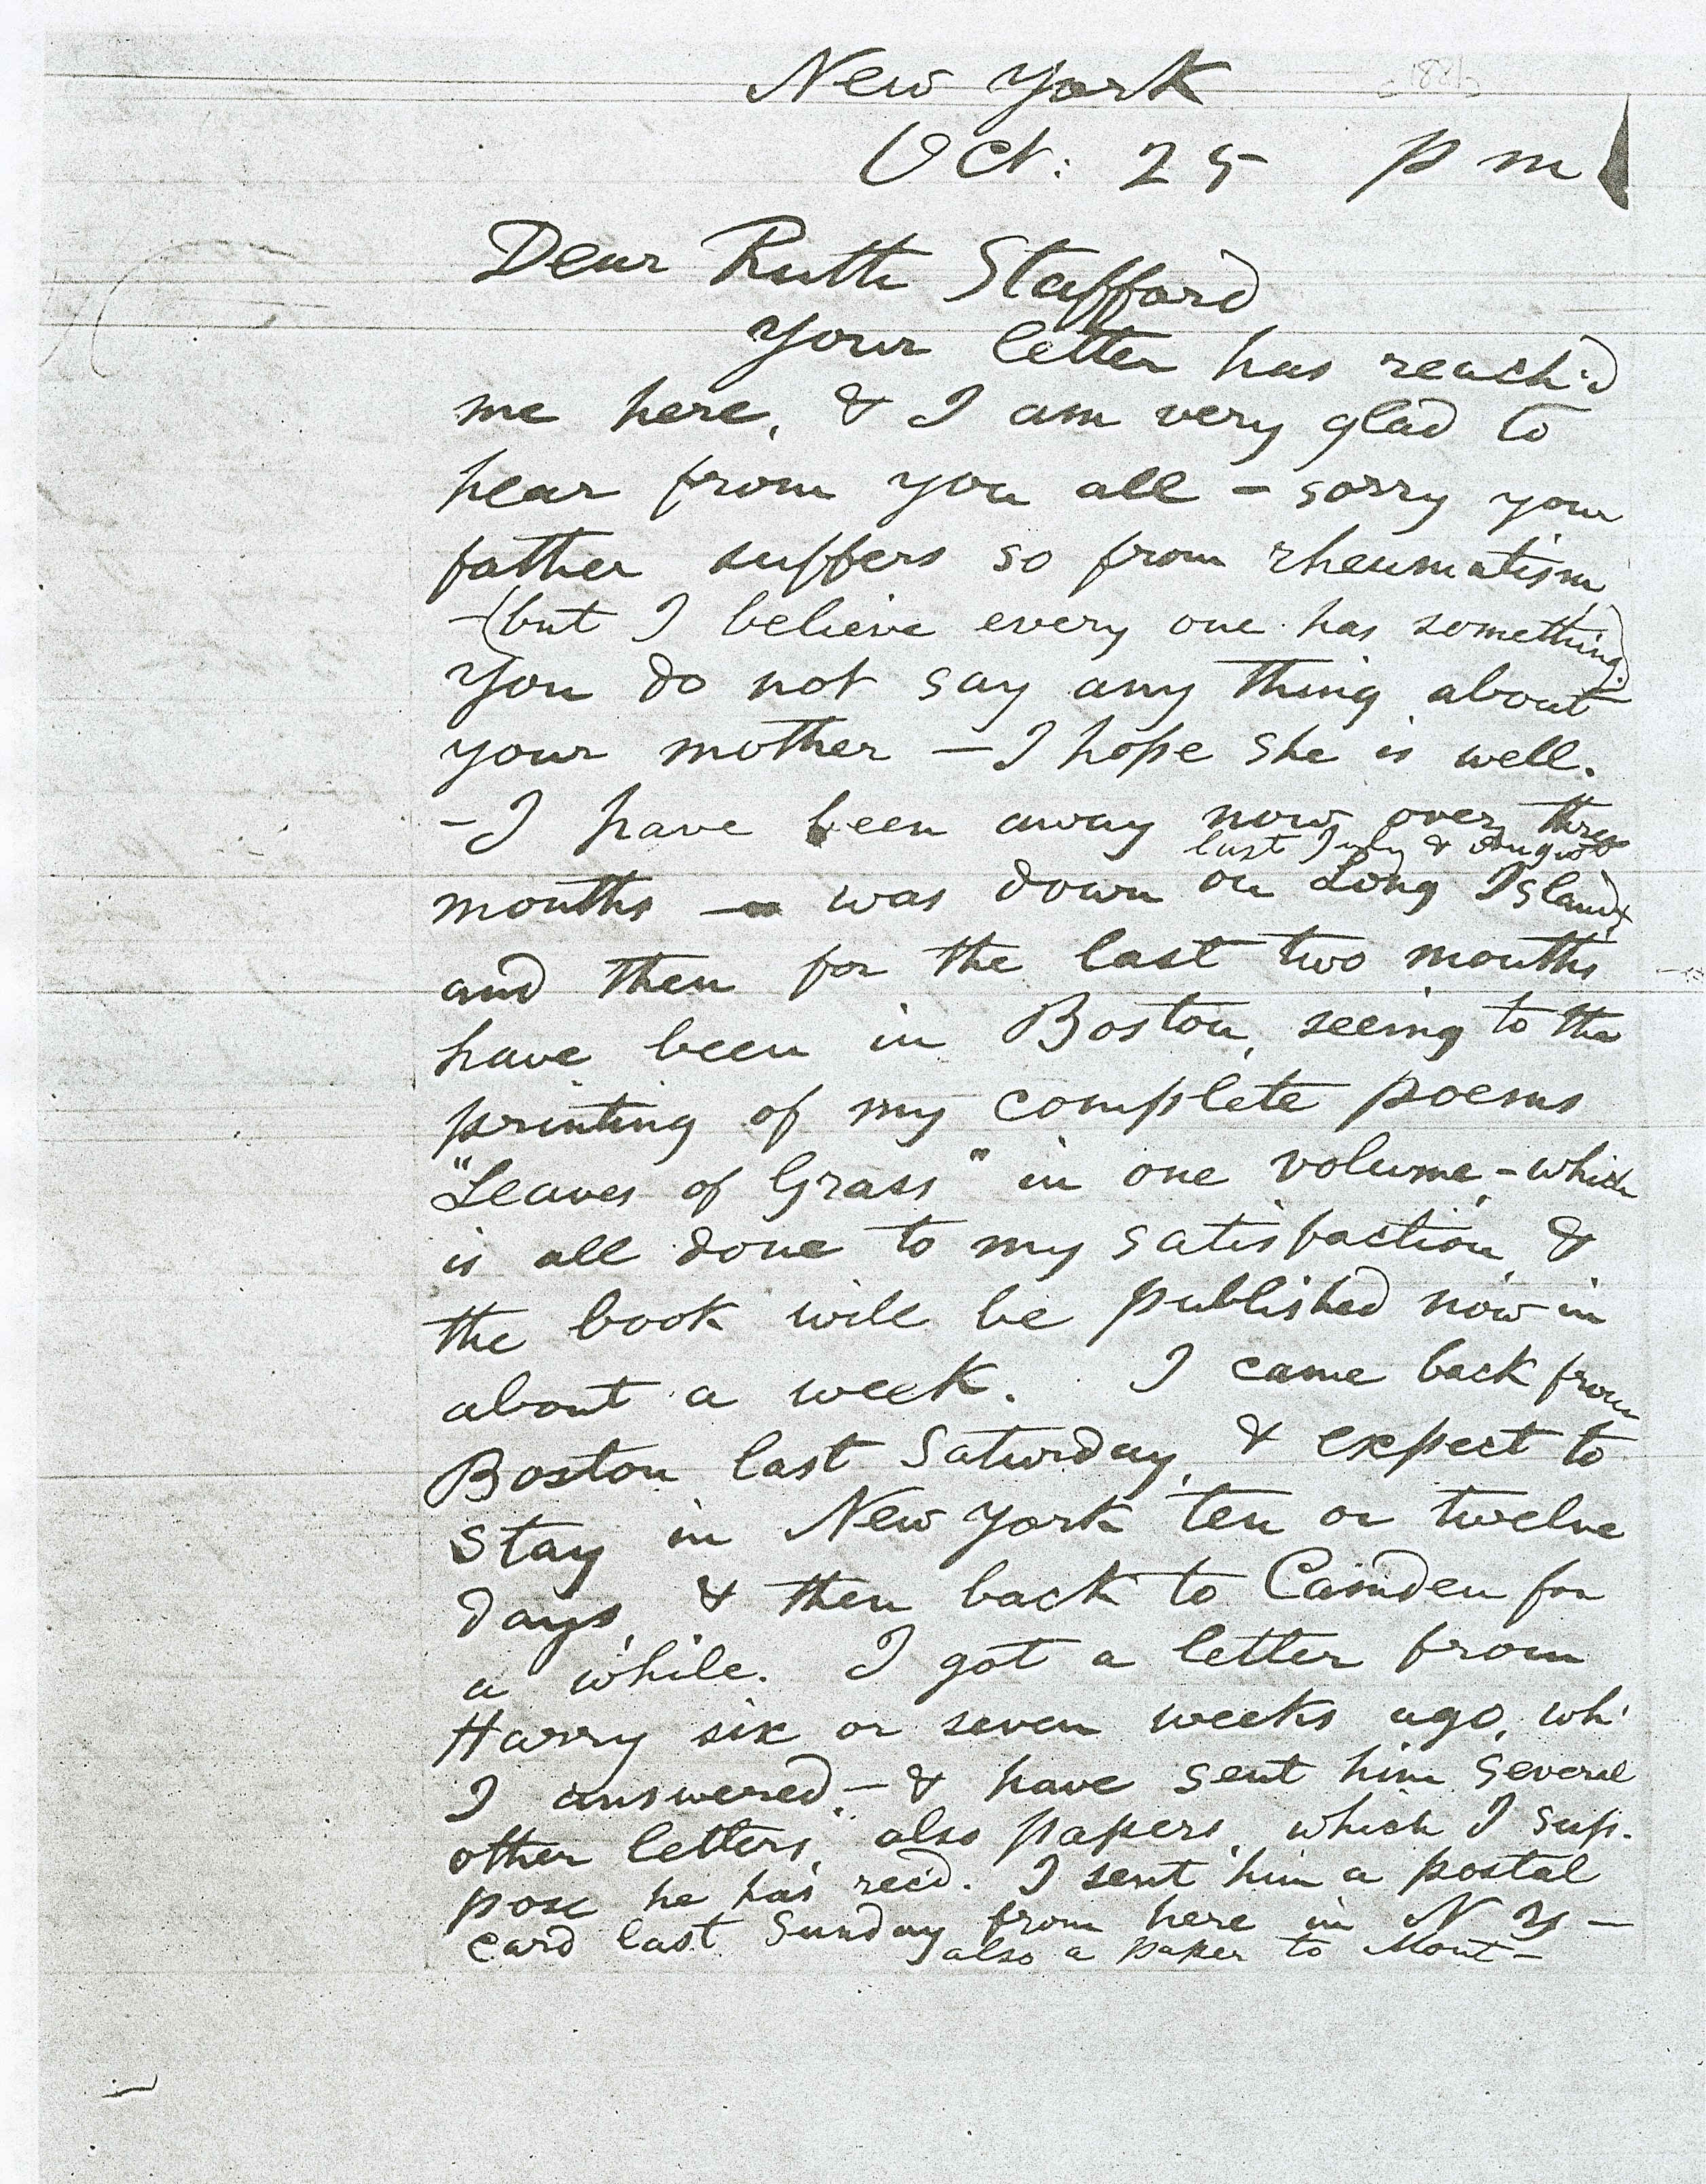 New York
1881
Oct: 25 p m
Dear Ruth Stafford
Your letter has reach'd
me here, & I am very glad to
hear from you all – sorry your
father suffers so from rheumatism,
– (but I believe every one has something)
You do not say any thing about
your mother – I hope she is well.
– I have been away now over three
last July & August
months – was down on Long Island,
and then for the last two months
have been in Boston, seeing to the
printing of my complete poems
"Leaves of Grass" in one volume, – which
is all done to my satisfaction, &
the book will be published now in
about a week. I came back from
Boston last Saturday, & expect to
stay in New York ten or twelve
days, & then back to Camden for
a while. I got a letter from
Harry six or seven weeks ago, wh'
I answered – & have sent him several
other letters, also papers, which I sup-
pose he has rec'd. I sent him a postal
card last Sunday from here in N Y –
also a paper to Mont –